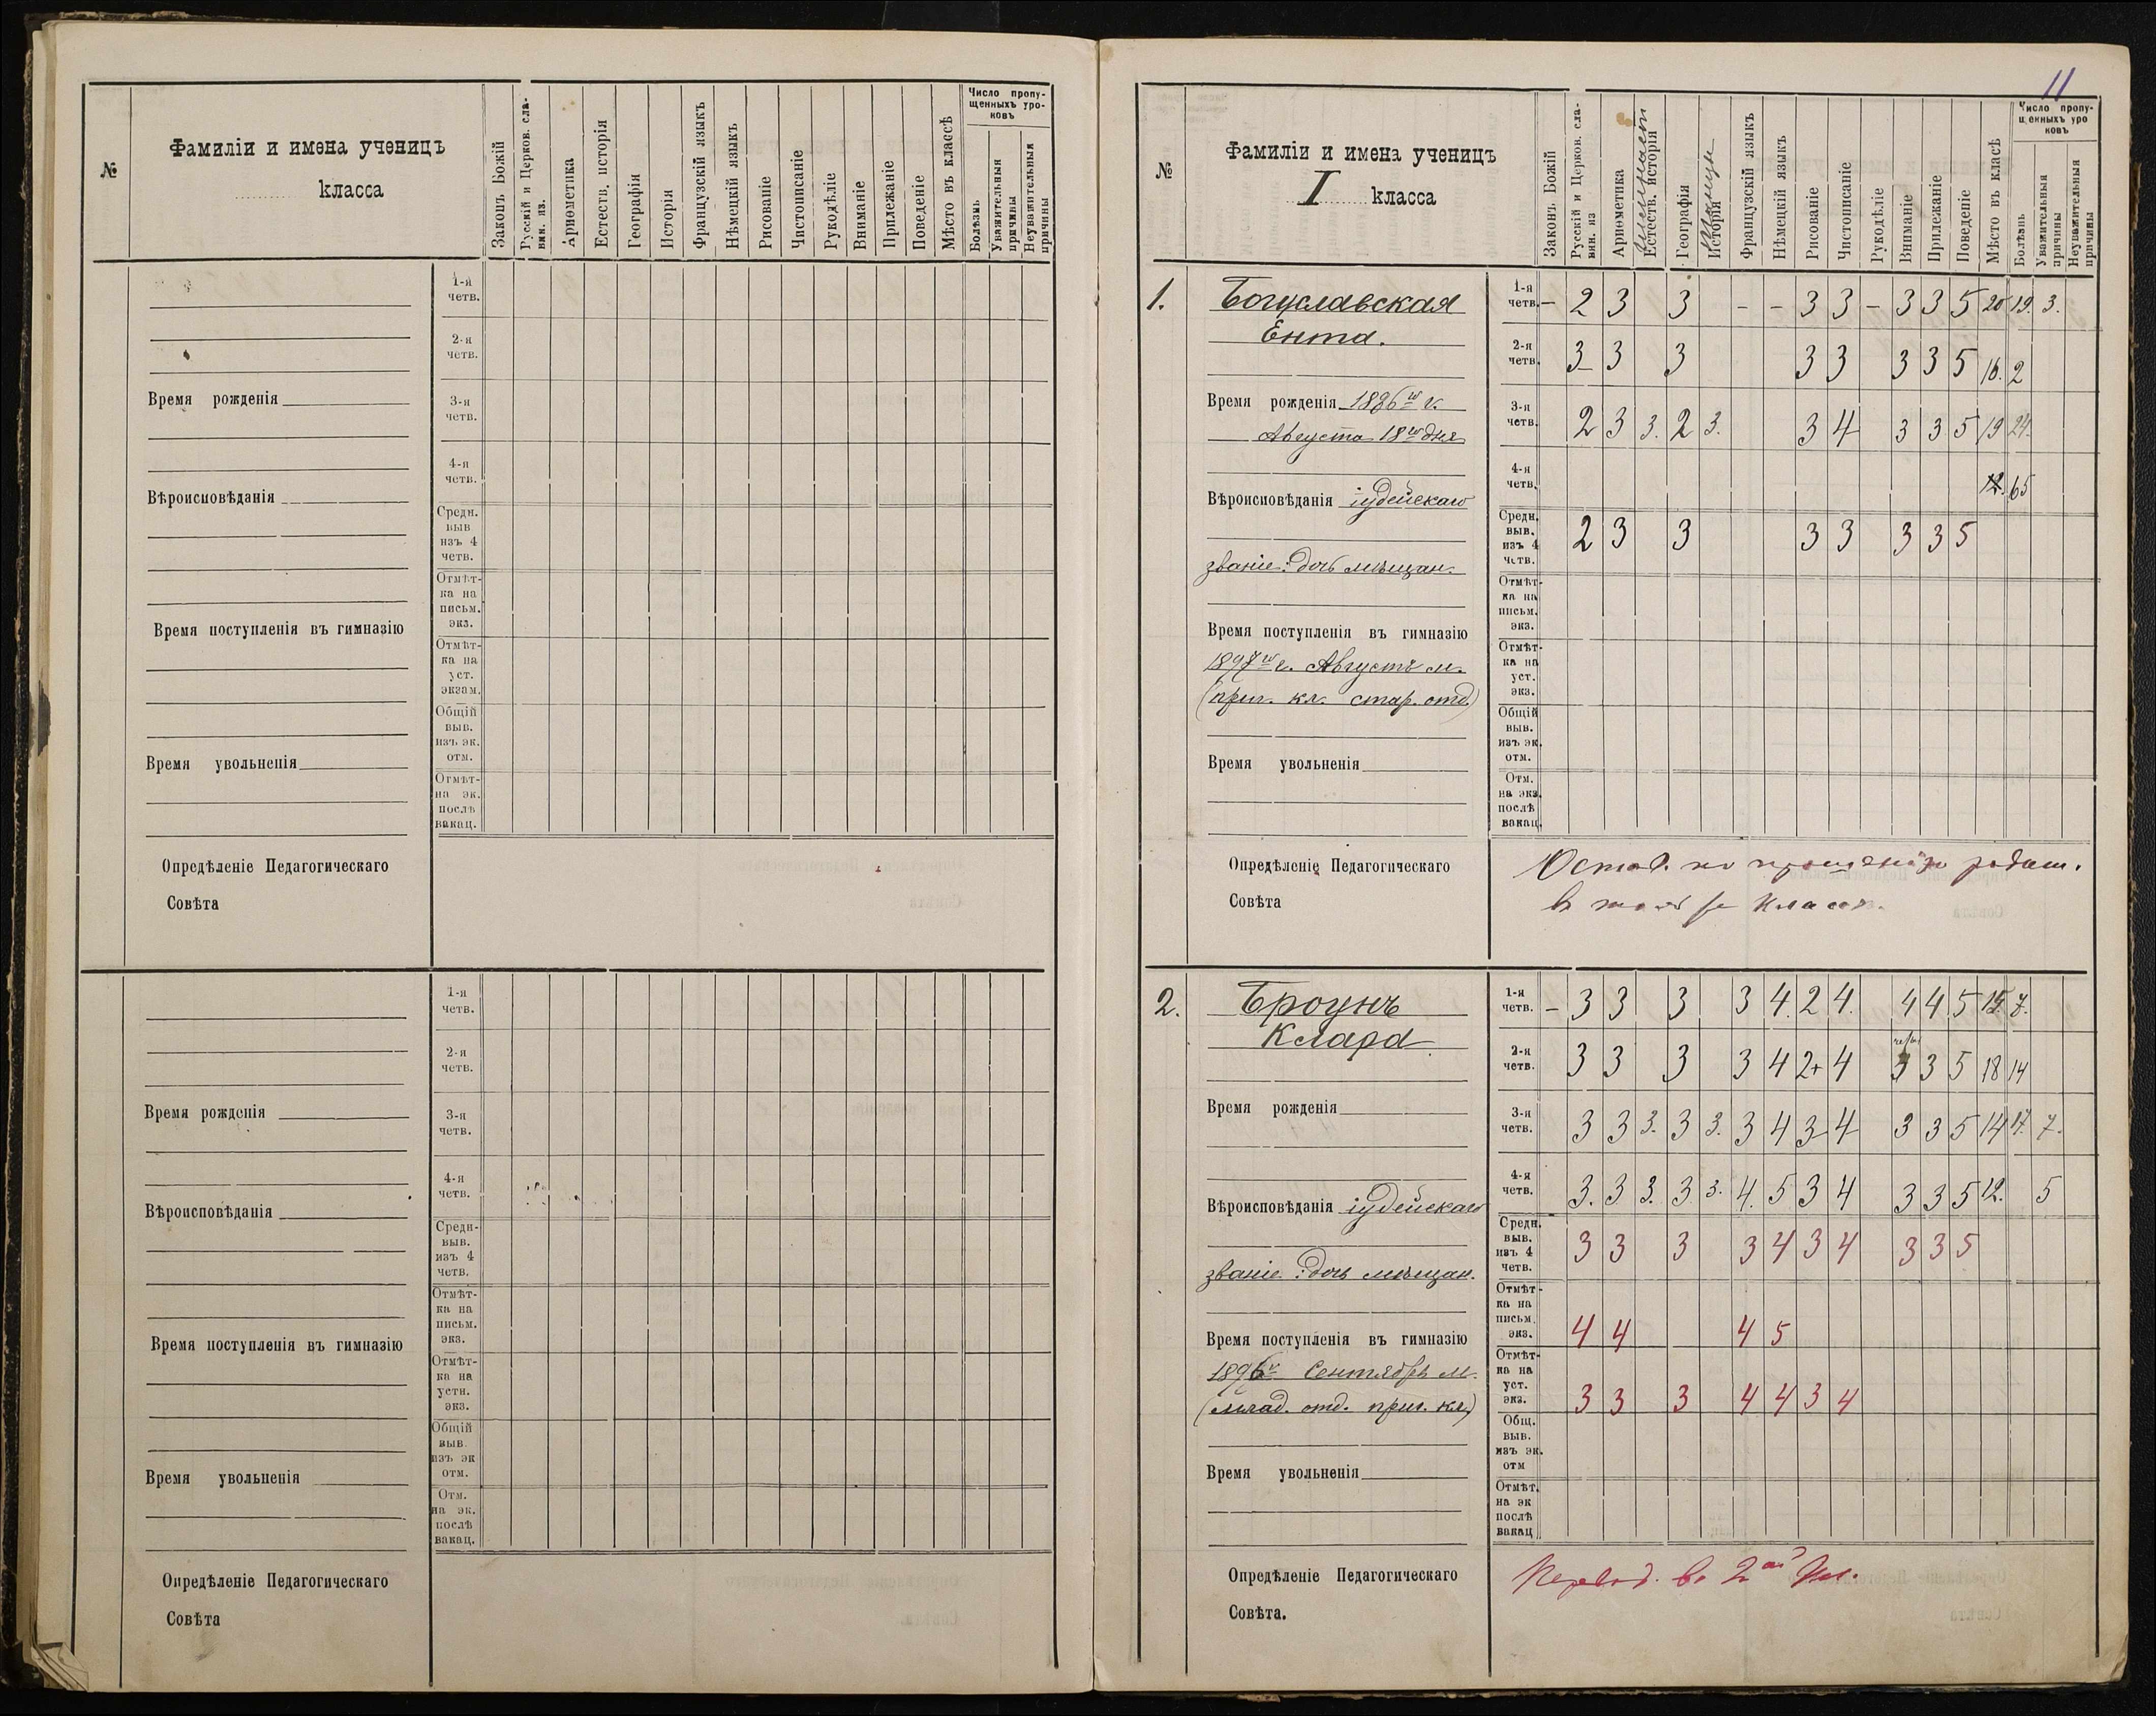 №
Фамиліи и имена ученицъ
класса
Законъ Божій
Русскій и Церков. сла-
вян. яз.
Ариѳметика
Естеств. исторія
Географія
Исторія
Французскій языкъ
Нѣмецкій языкъ
Рисованіе
Чистописаніе
Рукодѣліе
Вниманіе
Прилежаніе
Поведеніе
Мѣсто въ классѣ
Число пропу-
щенныхъ уро-
ковъ
Болѣзнь
Уважительныя
причины
Неуважительныя
причины
1-я
четв.
2-я
четв.
Время рожденія
3-я
четв.
4-я
четв.
Вѣроисповѣданія
Средн.
выв
изъ 4
четв.
Отмѣт-
ка на
письм.
экз.
Время поступленія въ гимназію
Отмѣт-
ка на
уст.
экзам.
Общій
выв.
изъ эк.
отм.
Время увольненія
Отмѣт-
на эк.
послѣ
вакац.
Опредѣленіе Педагогическаго
Совѣта
1-я
четв.
2-я
четв.
Время рожденія
3-я
четв.
4-я
четв.
Вѣроисповѣданія
Средн-
выв.
изъ 4
четв.
Отмѣт-
ка на
письм.
экз.
Время поступленія въ гимназію
Отмѣт-
ка на
устн.
экз.
Общій
выв.
изъ эк
отм.
Время увольненія
Отм.
на эк.
послѣ
вакац.
Опредѣленіе Педагогическаго
Совѣта
11
№
Фамиліи и имена ученицъ
I класса
Законъ Божій
Русскій и Церков. сла-
вян. яз
Ариѳметика
Естеств. исторія
Географія
Исторія
Французскій языкъ
Нѣмецкій языкъ
Рисованіе
Чистописаніе
Рукодѣліе
Вниманіе
Прилежаніе
Поведеніе
Мѣсто въ класѣ
Число пропу-
щенныхъ уро
ковъ
Болѣзнь
Уважительныя
причины
Неуважительныя
причины
1. Богуславская
Ента.
1-я
четв. – 2 3 3 - - 3 3 – 3 3 5 20 19. 3.
2-я
четв. 3 3 3 3 3 3 3 5 16. 2
Время рожденія 1886го г.
Августа 18го дня
3-я
четв. 2 3 3. 2 3. 3 4 3 3 5 19 24.
4-я
четв. 12. 65
Вѣроисповѣданія іудейскаго
Средн.
выв.
изъ 4
четв. 2 3 3 3 3 3 3 5
званіе: дочь мѣщан.
Отмѣт-
ка на
письм.
экз.
Время поступленія въ гимназію
1897го г. Августъ м.
(приг. кл. стар. отд.)
Отмѣт-
ка на
уст.
экз.
Общій
выв.
изъ эк.
отм.
Время увольненія
Отм.
на экз.
послѣ
вакац.
Опредѣленіе Педагогическаго
Совѣта
Остав. по прошенію родит.
въ томъ же классѣ.
2. Броунъ
Клара
1-я
четв. – 3 3 3 3 4. 2 4. 4 4 5 15. 7.
2-я
четв. 3 3 3 3 4 2+ 4 3 3 5 18 14
Время рожденія
3-я
четв. 3 3 3. 3 3. 3 4 3- 4 3 3 5 14 17. 7.
4-я
четв. 3. 3 3. 3 3. 4. 5 3 4 3 3 5 12. 5
Вѣроисповѣданія іудейскаго
Средн.
выв.
изъ 4
четв. 3 3 3 3 4 3 4 3 3 5
званіе: дочь мѣщан.
Отмѣт-
ка на
письм.
экз. 4 4 4 5
Время поступленія въ гимназію
1896г. Сентябрь м.
(млад. отд. приг. кл.)
Отмѣт-
ка на
уст.
экз. 3 3 3 4 4 3 4
Общ.
выв.
изъ эк.
отм
Время увольненія
Отмѣт.
на эк
послѣ
вакац
Опредѣленіе Педагогическаго
Совѣта.
Перевод. во 2ой кл.